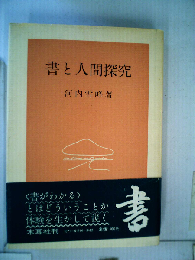 書と人間探究
河内
著
〈書がわかる〉
とはどういうことか
体験を生かして説く
書
木耳社刊